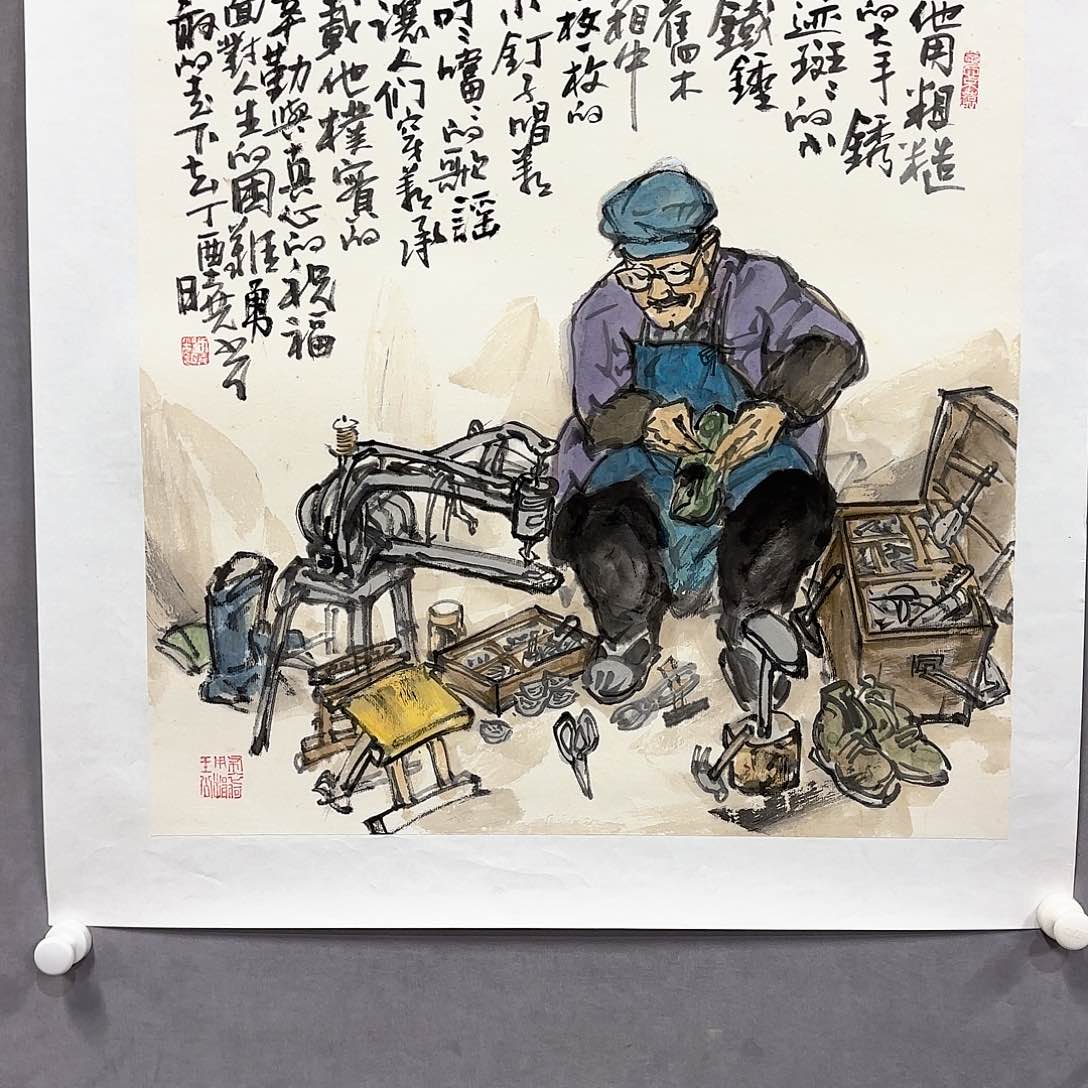 他用粗糙
的大手銹
迹斑〻的小
鐵錘
木
箱中
枚一枚的
小釘子唱着
叮〻噹〻的歌謡
讓人們穿着承
載他樸實的
辛勤與真心的祝福
面對人生的困難勇
敢的走下去丁酉